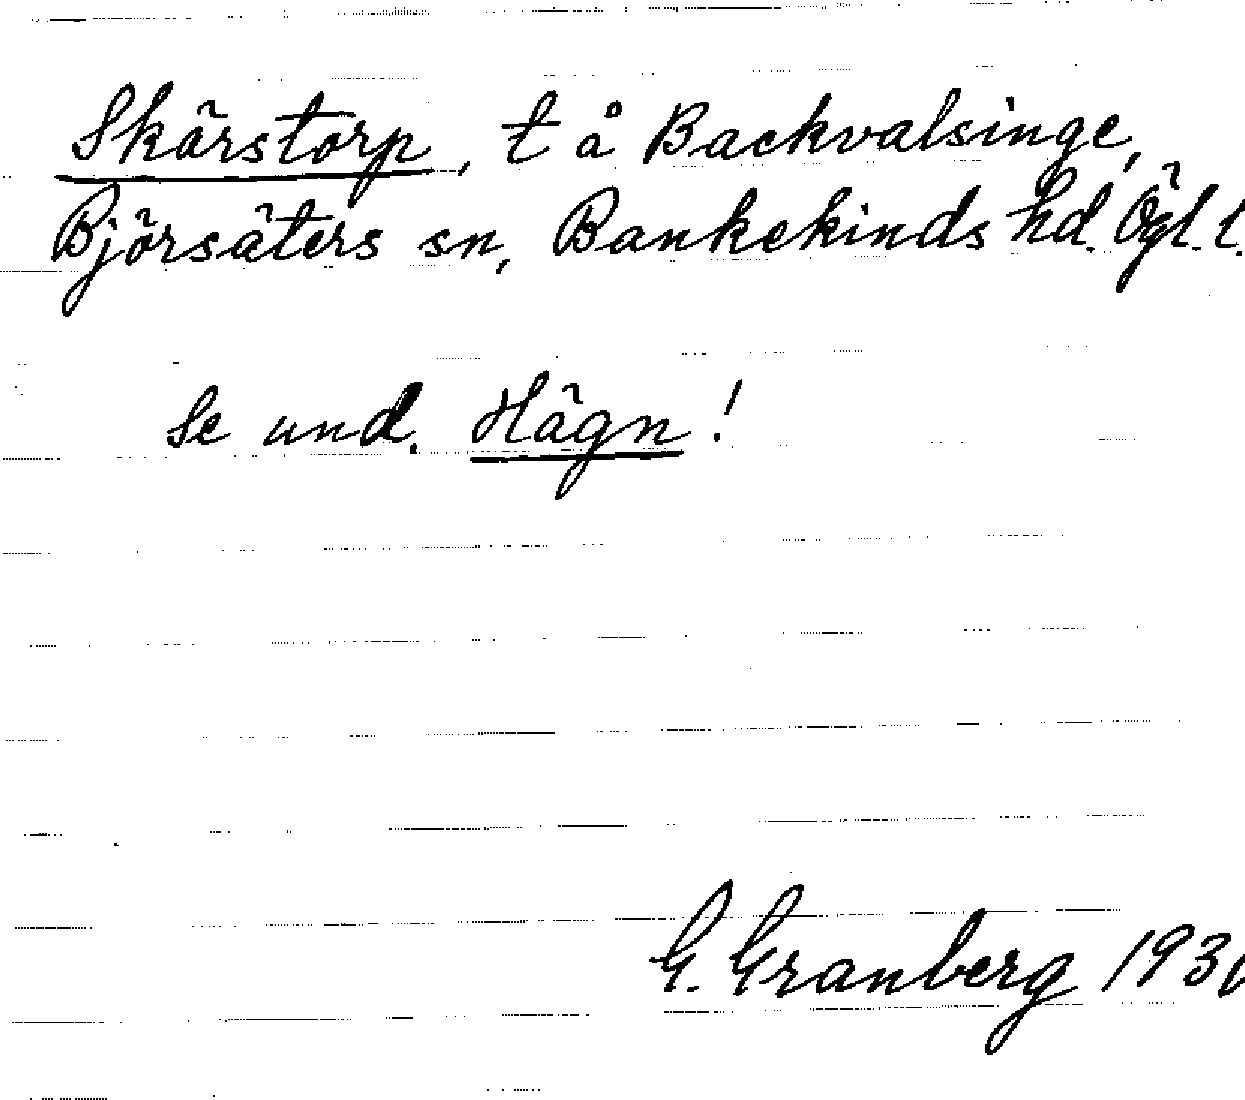 Skärstorp, t å Backvalsinge,
Björsäters sn, Bankekinds hd. Ögl. l.
Se und. Hägn!
G. Granberg